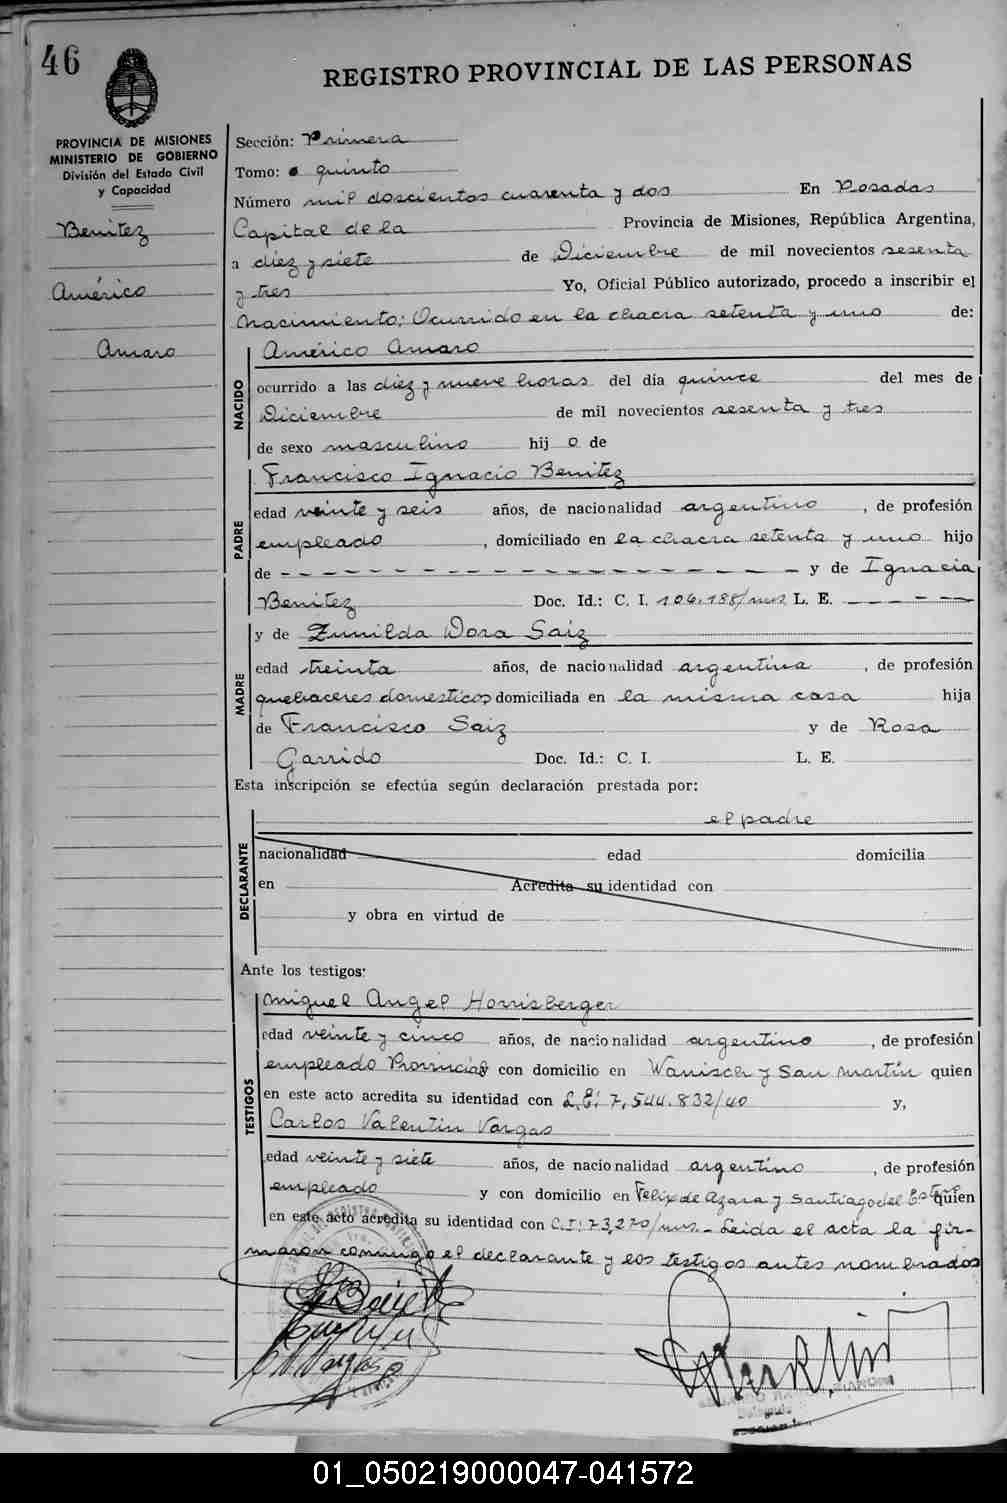 46
REGISTRO PROVINCIAL DE LAS PERSONAS
PROVINCIA DE MISIONES
MINISTERIO DE GOBIERNO
División del Estado Civil
y Capacidad
Benitez
Américo
Amaro
Sección: Primera
Tomo: quinto
Número mil doscientos cuarenta y dos En Posadas
Capital de la Provincia de Misiones, República Argentina,
a diez y siete de Diciembre de mil novecientos sesenta
y tres Yo, Oficial Público autorizado, procedo a inscribir el
Nacimiento; Ocurrido en la chacra setenta y uno de:
NACIDO
Américo Amaro
ocurrido a las diez y nueve horas del día quince del mes de
Diciembre de mil novecientos sesenta y tres
de sexo masculino hij o de
PADRE
Francisco Ignacio Benitez
edad veinte y seis años, de nacionalidad argentino, de profesión
empleado, domiciliado en la chacra setenta y uno hijo
de - - - - - - - - - - - - - - - - y de Ignacia
Benitez Doc. Id.: C. I. 106.188/mns. L. E. - - - - -
MADRE
y de Zunilda Dora Saiz
edad treinta años, de nacionalidad argentina, de profesión
quehaceres domesticos domiciliada en la misma casa hija
de Francisco Saiz y de Rosa
Garrido Doc. Id.: C. I. L. E.
Esta inscripción se efectúa según declaración prestada por:
el padre
DECLARANTE
nacionalidad edad domicilia
en Acredita su identidad con
y obra en virtud de
Ante los testigos:
TESTIGOS
Miguel Angel Horrisberger
edad veinte y cinco años, de nacionalidad argentino, de profesión
empleado Provincial y con domicilio en Wanisch y San Martín quien
en este acto acredita su identidad con L.E: 7,544.832/40 y,
Carlos Valentin Vargas
edad veinte y siete años, de nacionalidad argentino, de profesión
empleado y con domicilio en Felix de Azara y Santiago del Estro quien
en este acto acredita su identidad con C.I: 73,270/mns.- Leida el acta la fir-
maron conmigo el declarante y los testigos antes nombrados
01_050219000047-041572